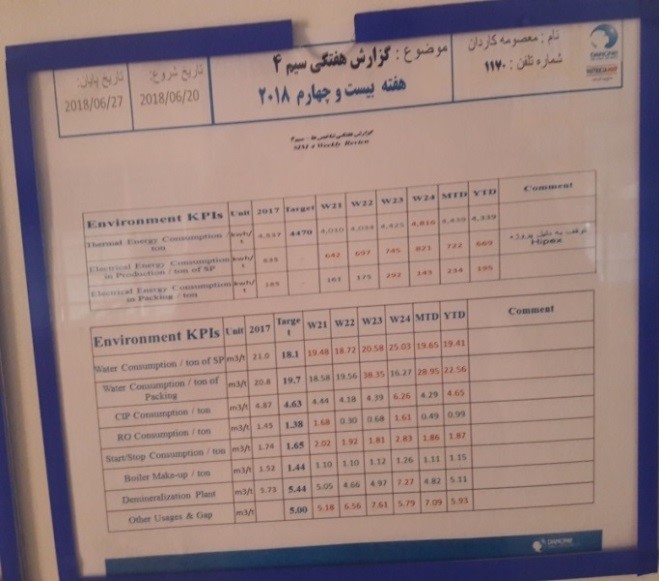 تاریخ پایان:
2018/06/27
تاریخ شروع:
2018/06/20
موضوع : گزارش هفتگی سیم ۴
هفته بیست و چهارم ۲۰۱۸
نام : معصومه کاردان
شماره تلفن : ۱۱۷۰
DANONE
MM 4 Weekly Review
Environment KPIs Unit 2017 Target W21 W22 W23 W24 MTD YTD Comment
Thermal Energy Consumption / ton kwh/t 4470 4,010
Electrical Energy Consumption in Production / ton of SP kwh/t 642 697 745 821 722 669 Hipex
Electrical Energy Consumption in Packing / ton kwh/t 165 163 175 292 143 234 195
Environment KPIs Unit 2017 Target W21 W22 W23 W24 MTD YTD Comment
Water Consumption / ton of SP m3/t 21.0 18.1 19.48 18.72 20.58 25.03 19.65 19.41
Water Consumption / ton of Packing m3/t 20.8 19.7 18.58 19.56 38.35 16.27 28.95 22.56
CIP Consumption / ton m3/t 4.87 4.63 4.44 4.18 4.39 6.26 4.29 4.65
RO Consumption / ton m3/t 1.45 1.38 1.68 0.30 0.68 1.61 0.49 0.99
Start/Stop Consumption / ton m3/t 1.74 1.65 2.02 1.92 1.81 2.83 1.86 1.87
Boiler Make-up / ton m3/t 1.52 1.44 1.10 1.10 1.12 1.26 1.11 1.15
Demineralization Plant m3/t 5.73 5.44 5.05 4.66 4.97 7.27 4.82 5.11
Other Usages & Gap m3/t 5.00 5.18 6.56 7.61 5.79 7.09 5.93
DANONE